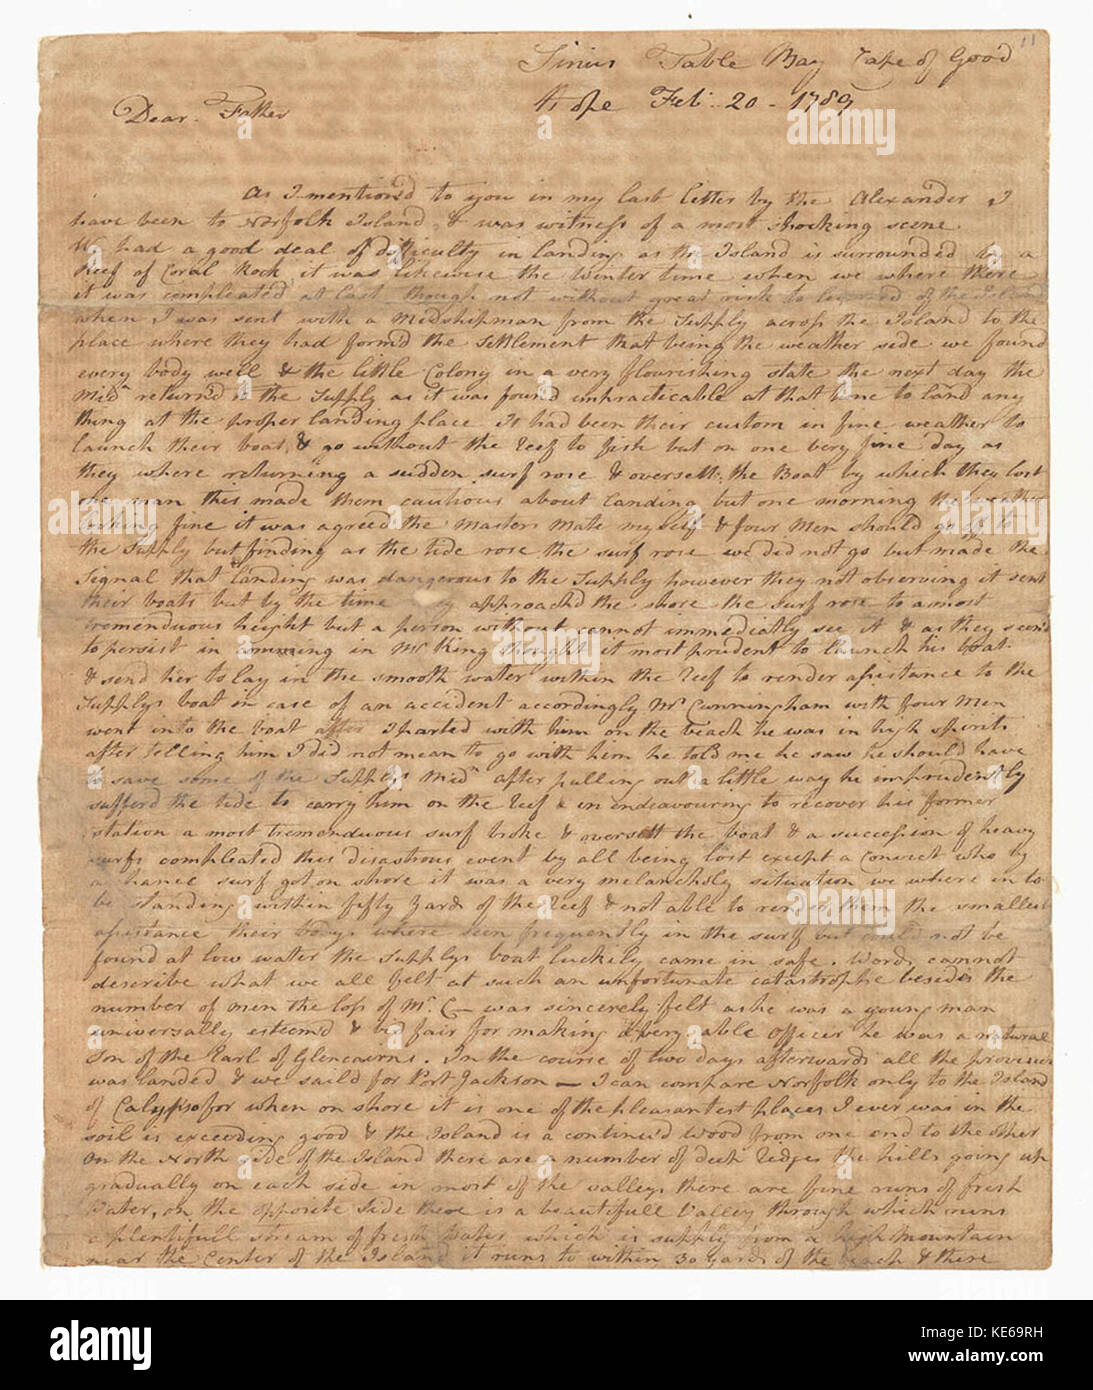 11
Sirius Table Bay Cape of Good
Hope Feb. 20 - 1789
Dear Father
As I mention'd to you in my last letter by the Alexander I
have been to Norfolk Island, & was witness of a most shocking scene
We had a good deal of difficulty in landing as the Island is surrounded by a
Reef of Coral Rock, it was likewise the Winter time when we where there
it was compleated at last though not without great risk to leeward of the Island
when I was sent with a Midshipman from the Supply across the Island to the
place where they had form'd the Settlement that being the weather side we found
every body well & the little Colony in a very flourishing state the next day the
Midn return'd to the Supply as it was found impracticable at that time to land any
thing at the proper landing place It had been their custom in fine weather to
launch their boat, & go without the Reef to fish but on one very fine day as
they where returning a sudden surf rose & oversett the Boat by which they lost
one man this made them cautious about landing but one morning the weather
looking fine it was agreed the Masters Mate myself & four Men should go off to
the Supply but finding as the tide rose the surf rose we did not go but made the
Signal that landing was dangerous to the Supply however they not observing it sent
their boats but by the time they approach'd the shore the surf rose to a most
tremenduous height but a person without cannot immediatly see it & as they seem'd
to persist in comming in Mr King thought it most prudent to launch his boat
& send her to lay in the smooth water within the Reef to render assistance to the
Supplys boat in case of an accident accordingly Mr Cunningham with four Men
went into the boat after I parted with him on the beach he was in high spirits
after telling him I did not mean to go with him he told me he saw he should have
to save some of the Supplys Midn after pulling out a little way he imprudently
sufferd the tide to carry him on the Reef & in endeavouring to recover his former
station a most tremenduous surf broke & oversett the boat & a succession of heavy
surfs compleated this disastrous event by all being lost except a Convict who by
a chance surf got on shore it was a very melancholy situation we where in to
be standing within fifty yards of the Reef & not able to render them the smallest
assistance their bodys where seen frequently in the surf but could not be
found at low water the Supplys boat luckily came in safe. Words cannot
describe what we all felt at such an unfortunate catastrophe besides the
number of men the loss of Mr C— was sincerely felt as he was a young man
universally esteem'd & bid fair for making a very able Officer he was a natural
son of the Earl of Glencairns. In the course of two days afterwards all the provisions
was landed & we sail'd for Port Jackson — I can compare Norfolk only to the Island
of Calypso for when on shore it is one of the pleasantest places I ever was in the
soil is exceeding good & the Island is a continu'd Wood from one end to the other
On the North side of the Island there are a number of deep ledges the hills going up
gradually on each side in most of the valleys there are fine runs of fresh
Water, on the opposite side there is a beautifull Valley through which runs
a plentifull stream of fresh water which is supply'd from a high Mountain
near the Center of the Island it runs to within 30 yards of the beach & there
alamy
Image ID: KE69RH
www.alamy.com